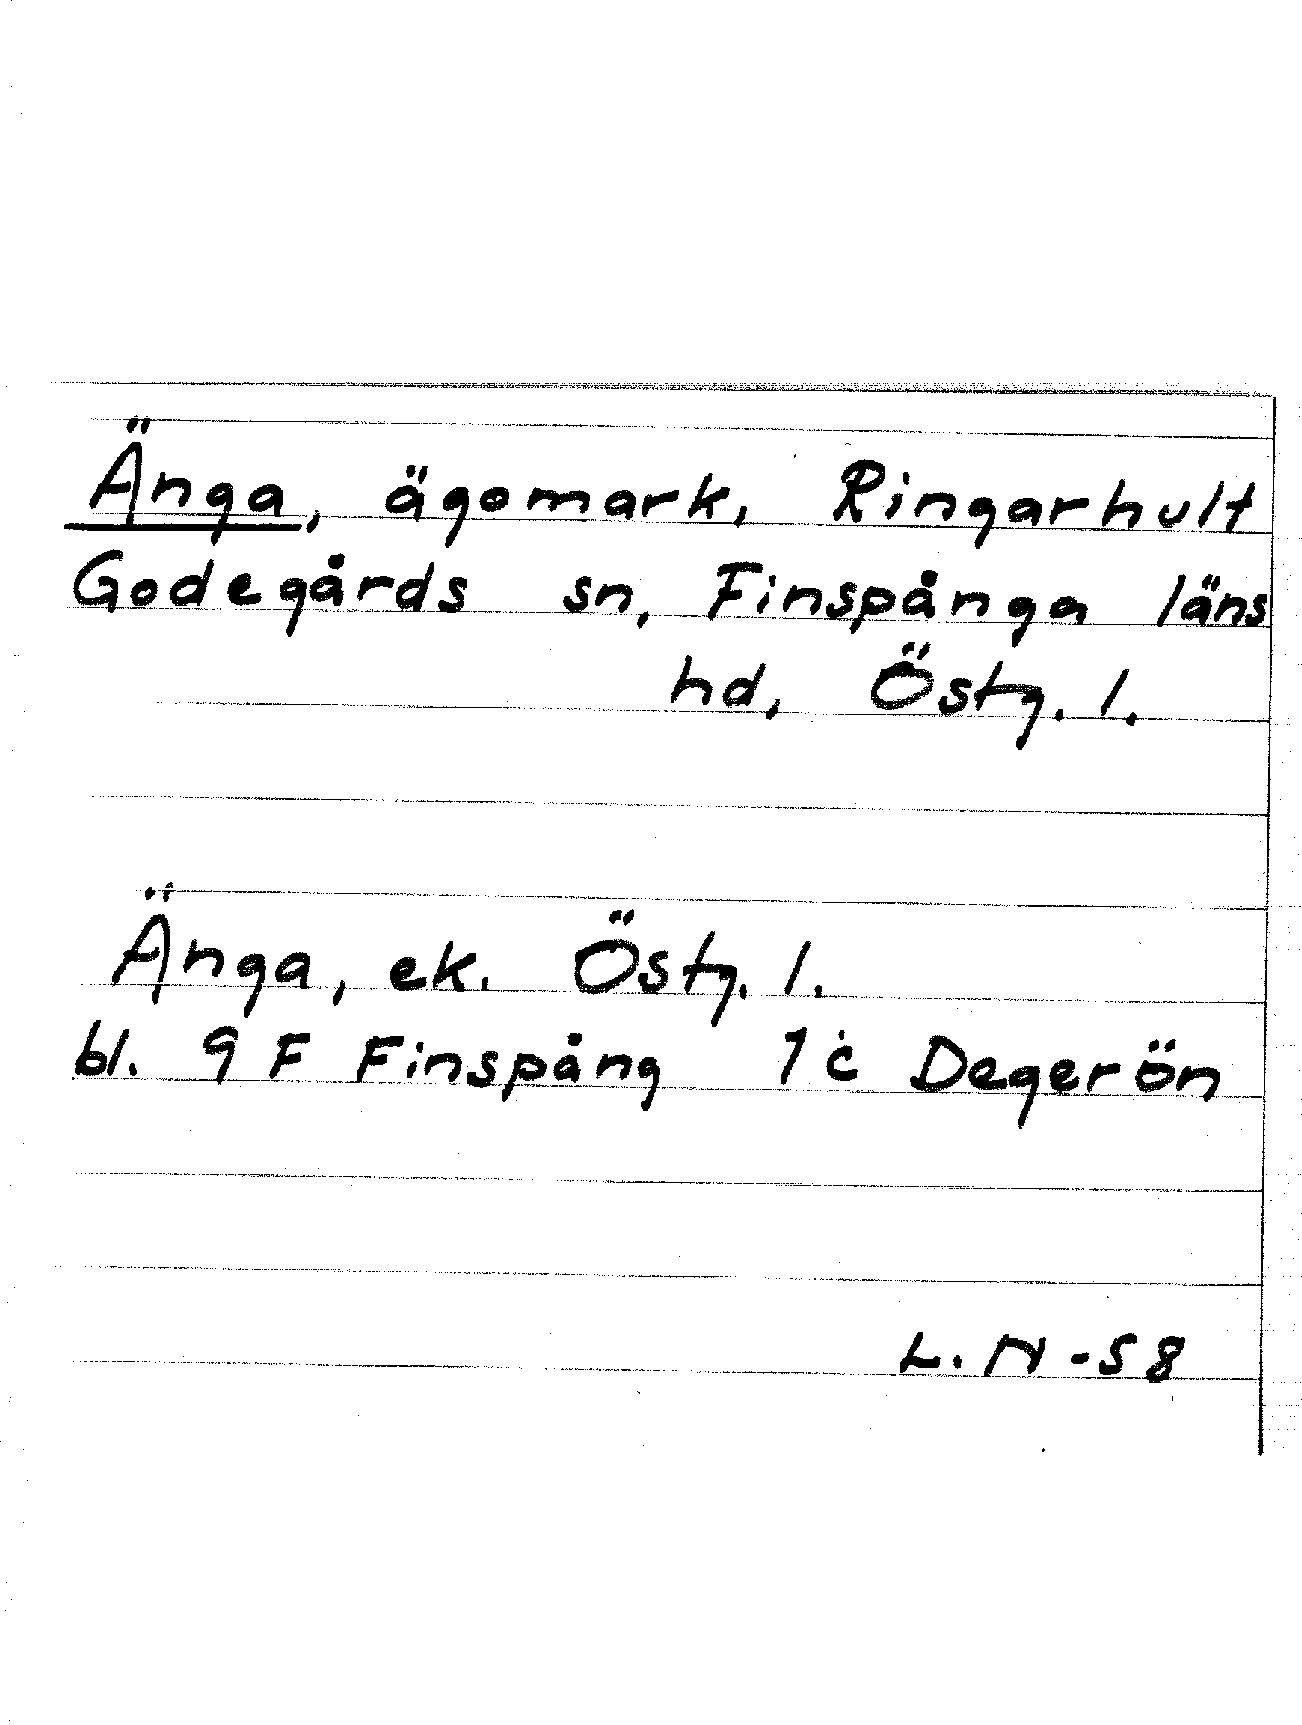 Änga, ägomark, Ringarhult
Godegårds sn, Finspånga läns
hd, Östg. l.
Änga, ek. Östg. l.
bl. 9 F Finspång 1 c Degerön
L. N -58